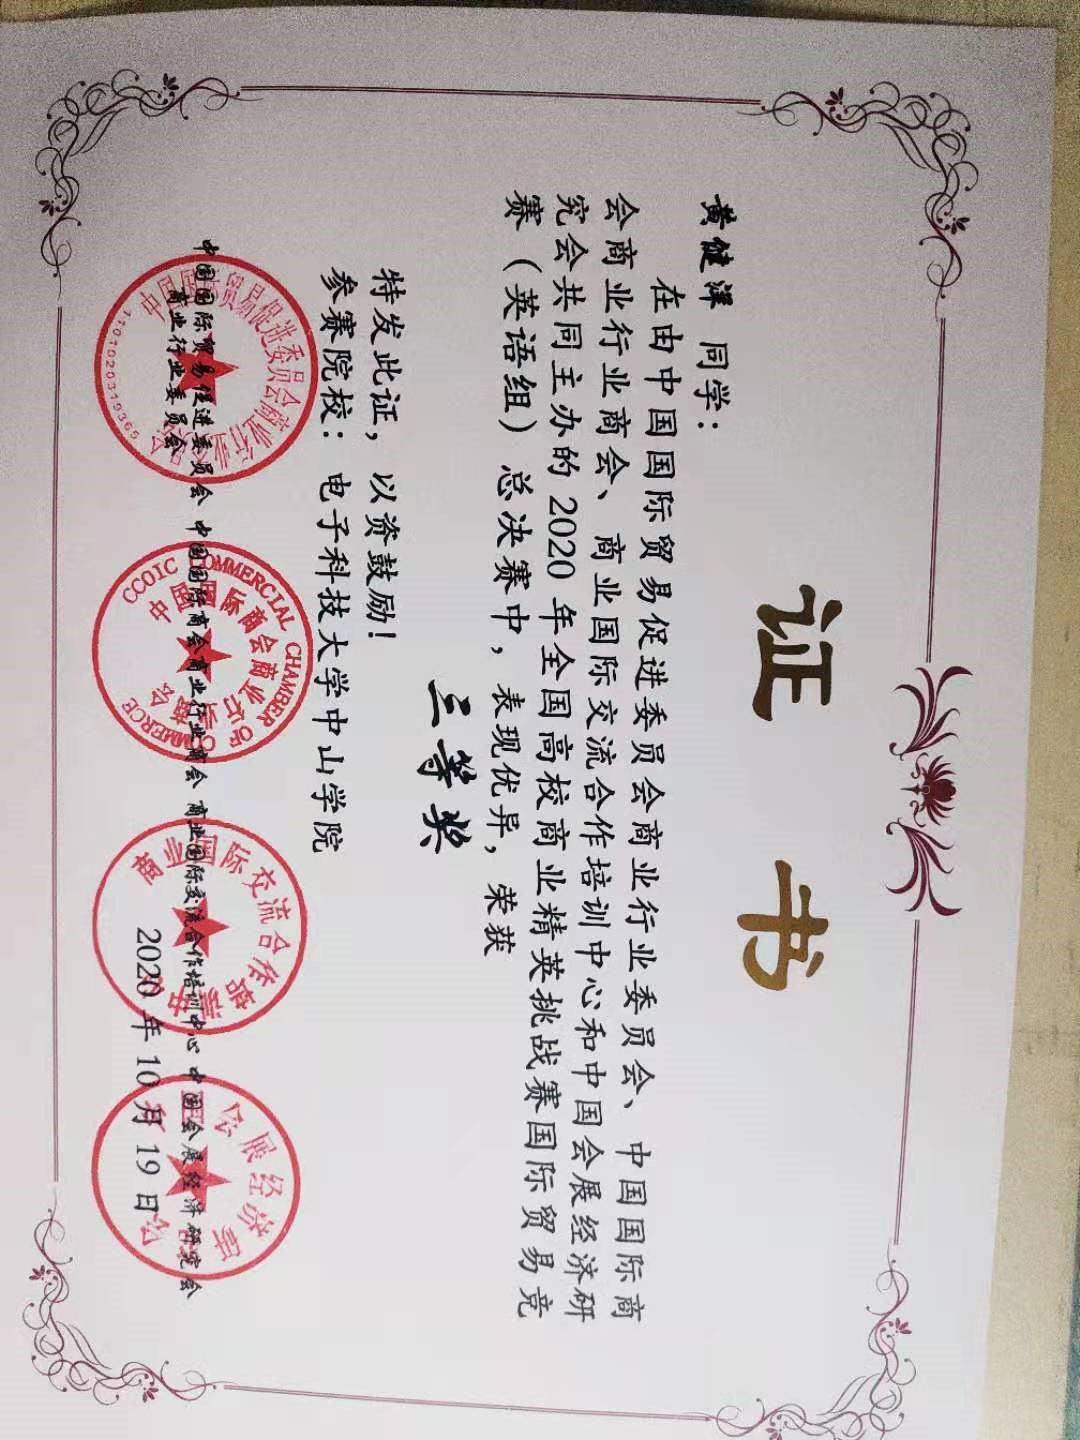 证书
黄健洋 同学：
在由中国国际贸易促进委员会商业行业委员会、中国国际商
会商业行业商会、商业国际交流合作培训中心和中国会展经济研
究会共同主办的2020年全国高校商业精英挑战赛国际贸易竞
赛（英语组）总决赛中，表现优异，荣获
三等奖
特发此证，以资鼓励！
参赛院校：电子科技大学中山学院
中国国际贸易促进委员会 中国国际商会商业行业商会 商业国际交流合作培训中心 中国会展经济研究会
商业行业委员会
2020年10月19日
CCOIC COMMERCIAL CHAMBER OF COMMERCE
1101020319365